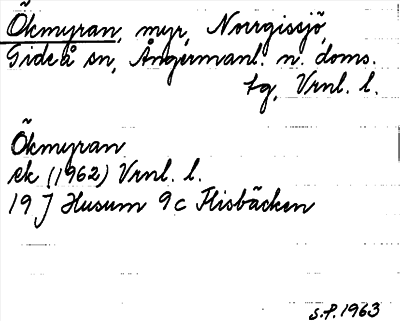 Ökmyran, myr, Norrgissjö,
Gideå sn, Ångermanl. n. doms.
tg, Vrnl. l.
Ökmyran
ek (1962) Vrnl. l.
19 J Husum 9 c Flisbäcken
S.P. 1963